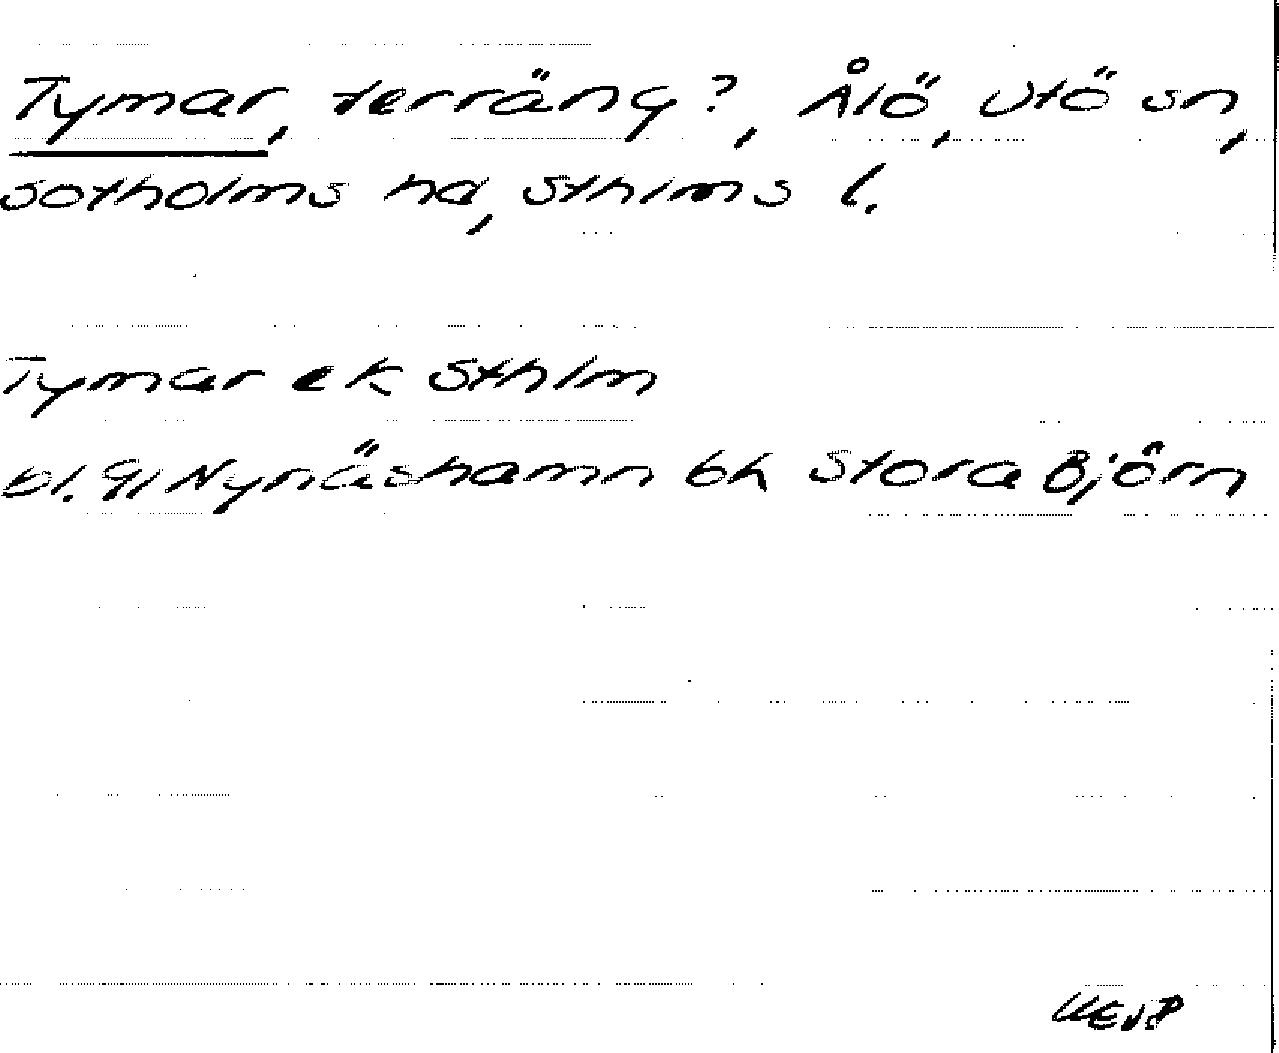 Tymar, terräng?, Ålö, Utö sn,
Sotholms hd, Sthlms l.
Tymar ek Sthlm
bl. 91 Nynäshamn bh Stora Björn